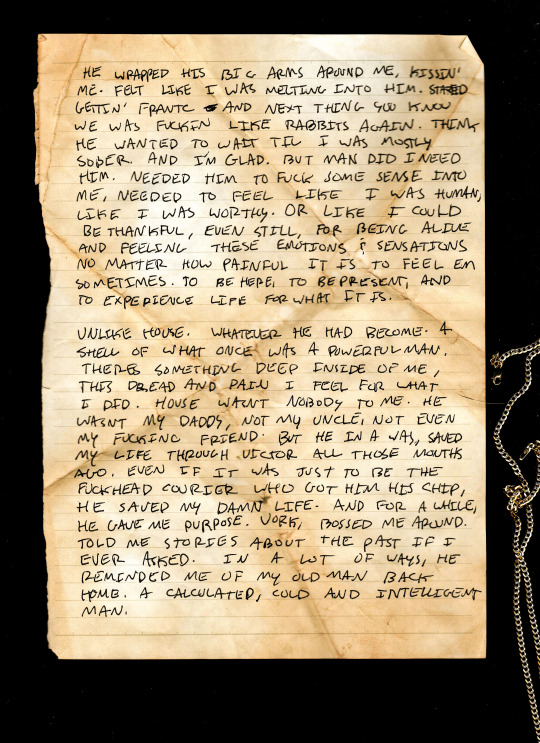 HE WRAPPED HIS BIG ARMS AROUND ME, KISSIN'
ME. FELT LIKE I WAS MELTING INTO HIM.
GETTIN' FRANTC AND NEXT THING YOU KNOW
WE WAS FUCKIN LIKE RABBITS AGAIN. THINK
HE WANTED TO WAIT TIL I WAS MOSTLY
SOBER. AND I'M GLAD. BUT MAN DID I NEED
HIM. NEEDED HIM TO FUCK SOME SENSE INTO
ME, NEEDED TO FEEL LIKE I WAS HUMAN,
LIKE I WAS WORTHY. OR LIKE I COULD
BE THANKFUL, EVEN STILL, FOR BEING ALIVE
AND FEELING THESE EMOTIONS & SENSATIONS
NO MATTER HOW PAINFUL IT IS TO FEEL EM
SOMETIMES. TO BE HERE, TO BE PRESENT, AND
TO EXPERIENCE LIFE FOR WHAT IT IS.
UNLIKE HOUSE. WHATEVER HE HAD BECOME. A
SHELL OF WHAT ONCE WAS A POWERFUL MAN.
THERES SOMETHING DEEP INSIDE OF ME,
THIS DREAD AND PAIN I FEEL FOR WHAT
I DID. HOUSE WASNT NOBODY TO ME. HE
WASNT MY DADDY, NOT MY UNCLE, NOT EVEN
MY FUCKING FRIEND. BUT HE IN A WAS, SAVED
MY LIFE THROUGH VICTOR ALL THOSE MOUTHS
AGO. EVEN IF IT WAS JUST TO BE THE
FUCKHEAD COURIER WHO GOT HIM HIS CHIP,
HE SAVED MY DAMN LIFE. AND FOR A WHILE,
HE GAVE ME PURPOSE. WORK, BOSSED ME AROUND.
TOLD ME STORIES ABOUT THE PAST IF I
EVER ASKED. IN A LOT OF WAYS, HE
REMINDED ME OF MY OLD MAN BACK
HOME. A CALCULATED, COLD AND INTELLIGENT
MAN.